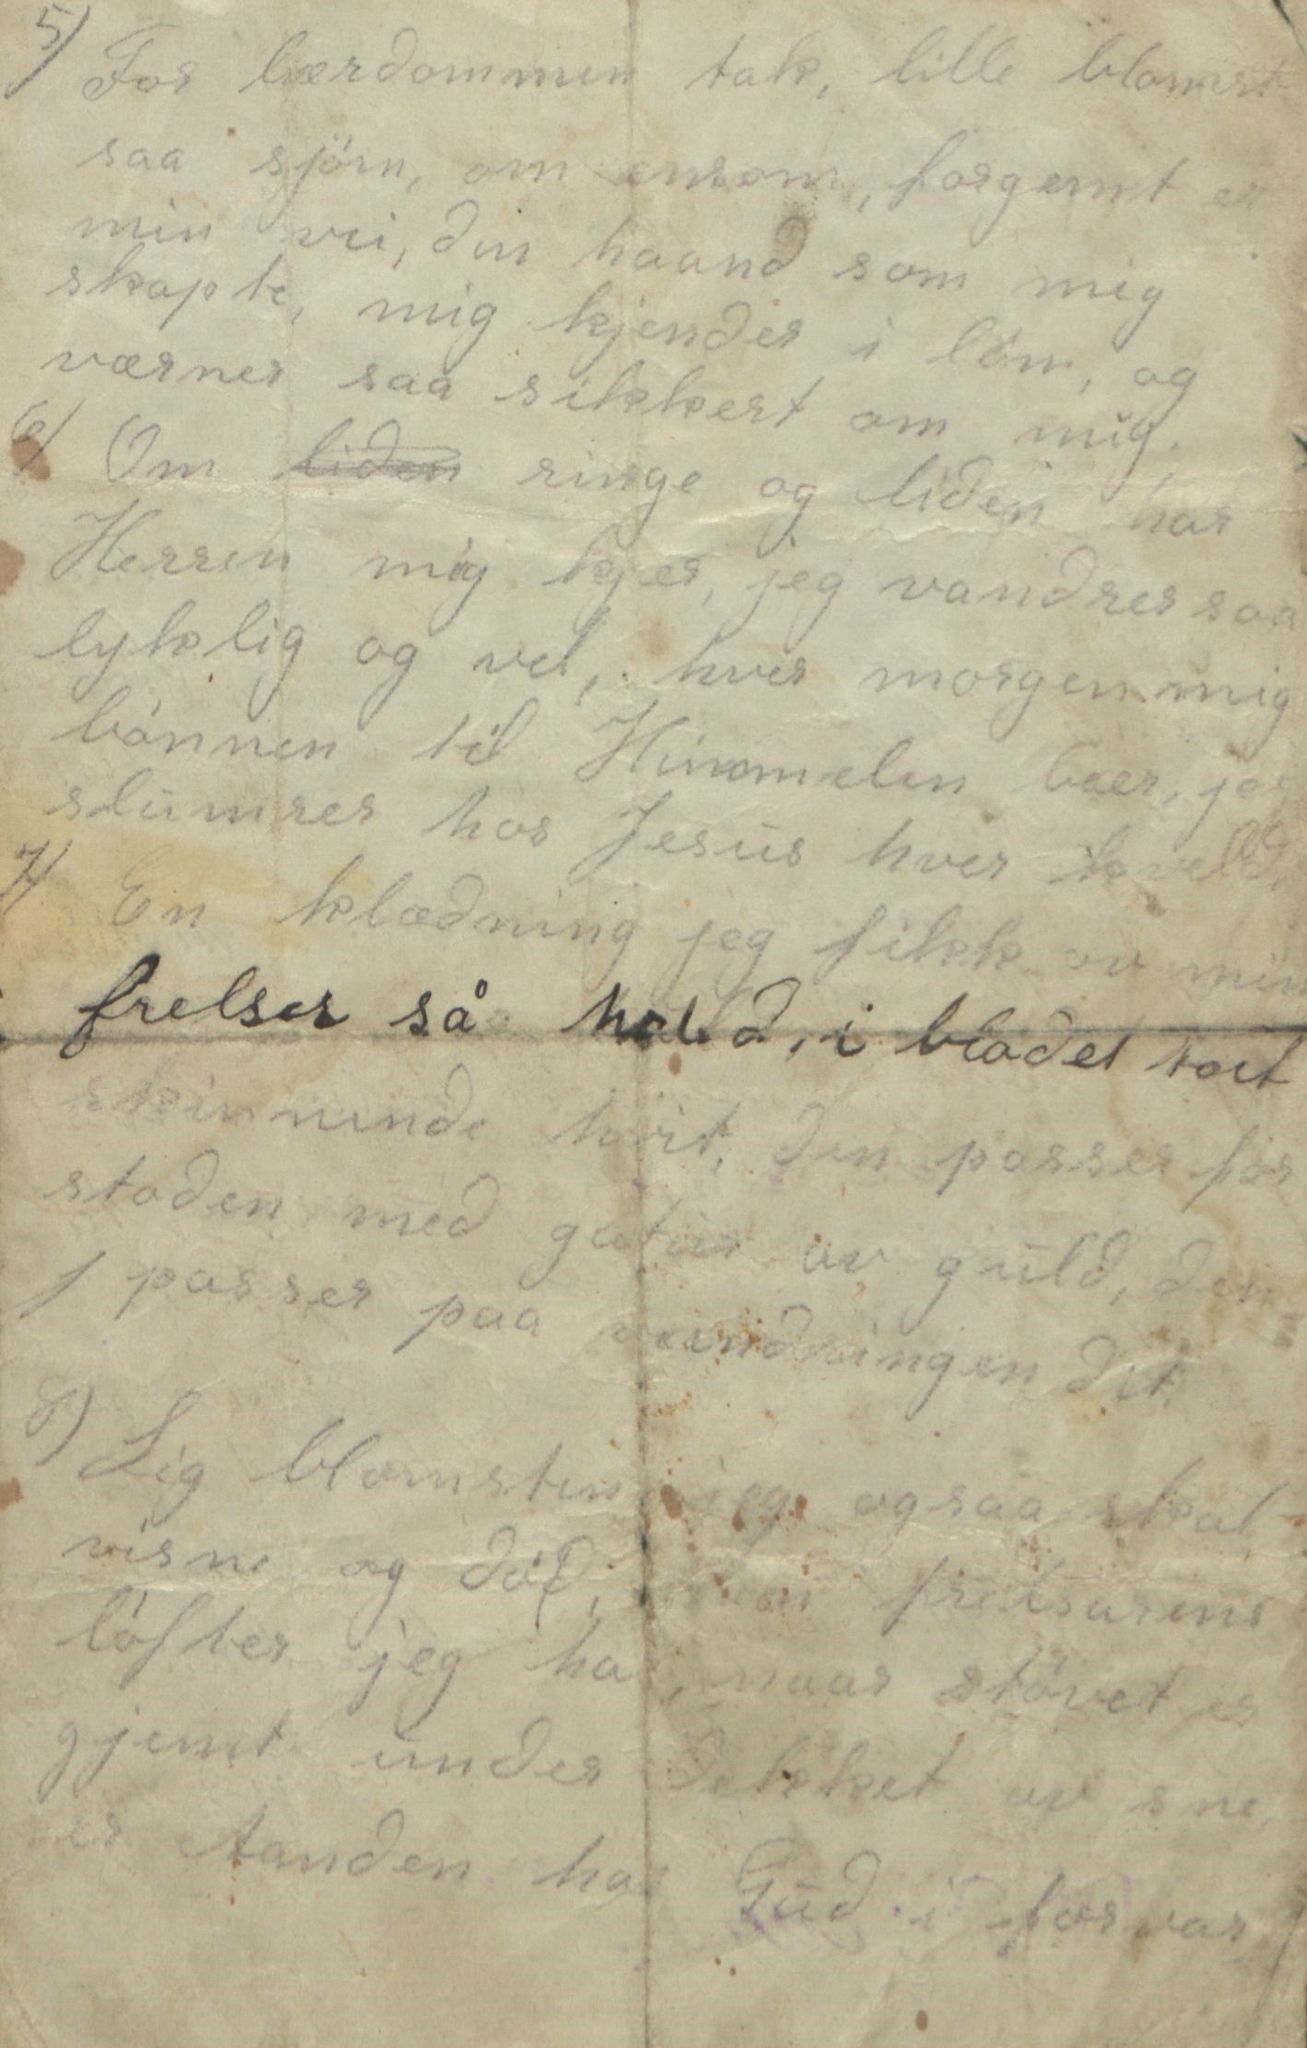 5) For lærdommen tak, lille blomst
saa sjön, om ensom, forgemt er
min vei, din haand som mig
skapte, mig kjender i löm, og
værner saa sikkert om mig.
6) Om liden ringe og liden har
Herren mig kjer, jeg vandrer saa
lyklig og vel, hver morgen mig
bönnen til Himmelen bær, jeg
slumrer hos Jesus hver kveld.
7) En klædning jeg fikk av min
frelser så huld, i blodet toet
skinnende hvit, den passer for
staden med gater av guld, den
passer paa vandringen dit.
8) Lig blomsten jeg ogsaa skal
visne og döe, men frelserens
löfter jeg har, naar stövet er
gjemt under dekket av sne,
er Aanden hos Gud i forvar